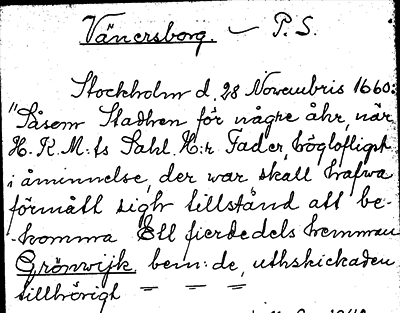 Vänersborg. — P. S.
Stockholm d. 28 Novembris 1660:
"Såsom Stadhen för någre åhr, när
H. K. M:ts Sahl. H:r Fader, högloflighst
i åminnelse, der war skall hafwa
förmått sigh tillstånd att be-
-komma Ett fierdedels hemman
Grönwijk, bem:de, uthskickaden
tillhörigt — — —